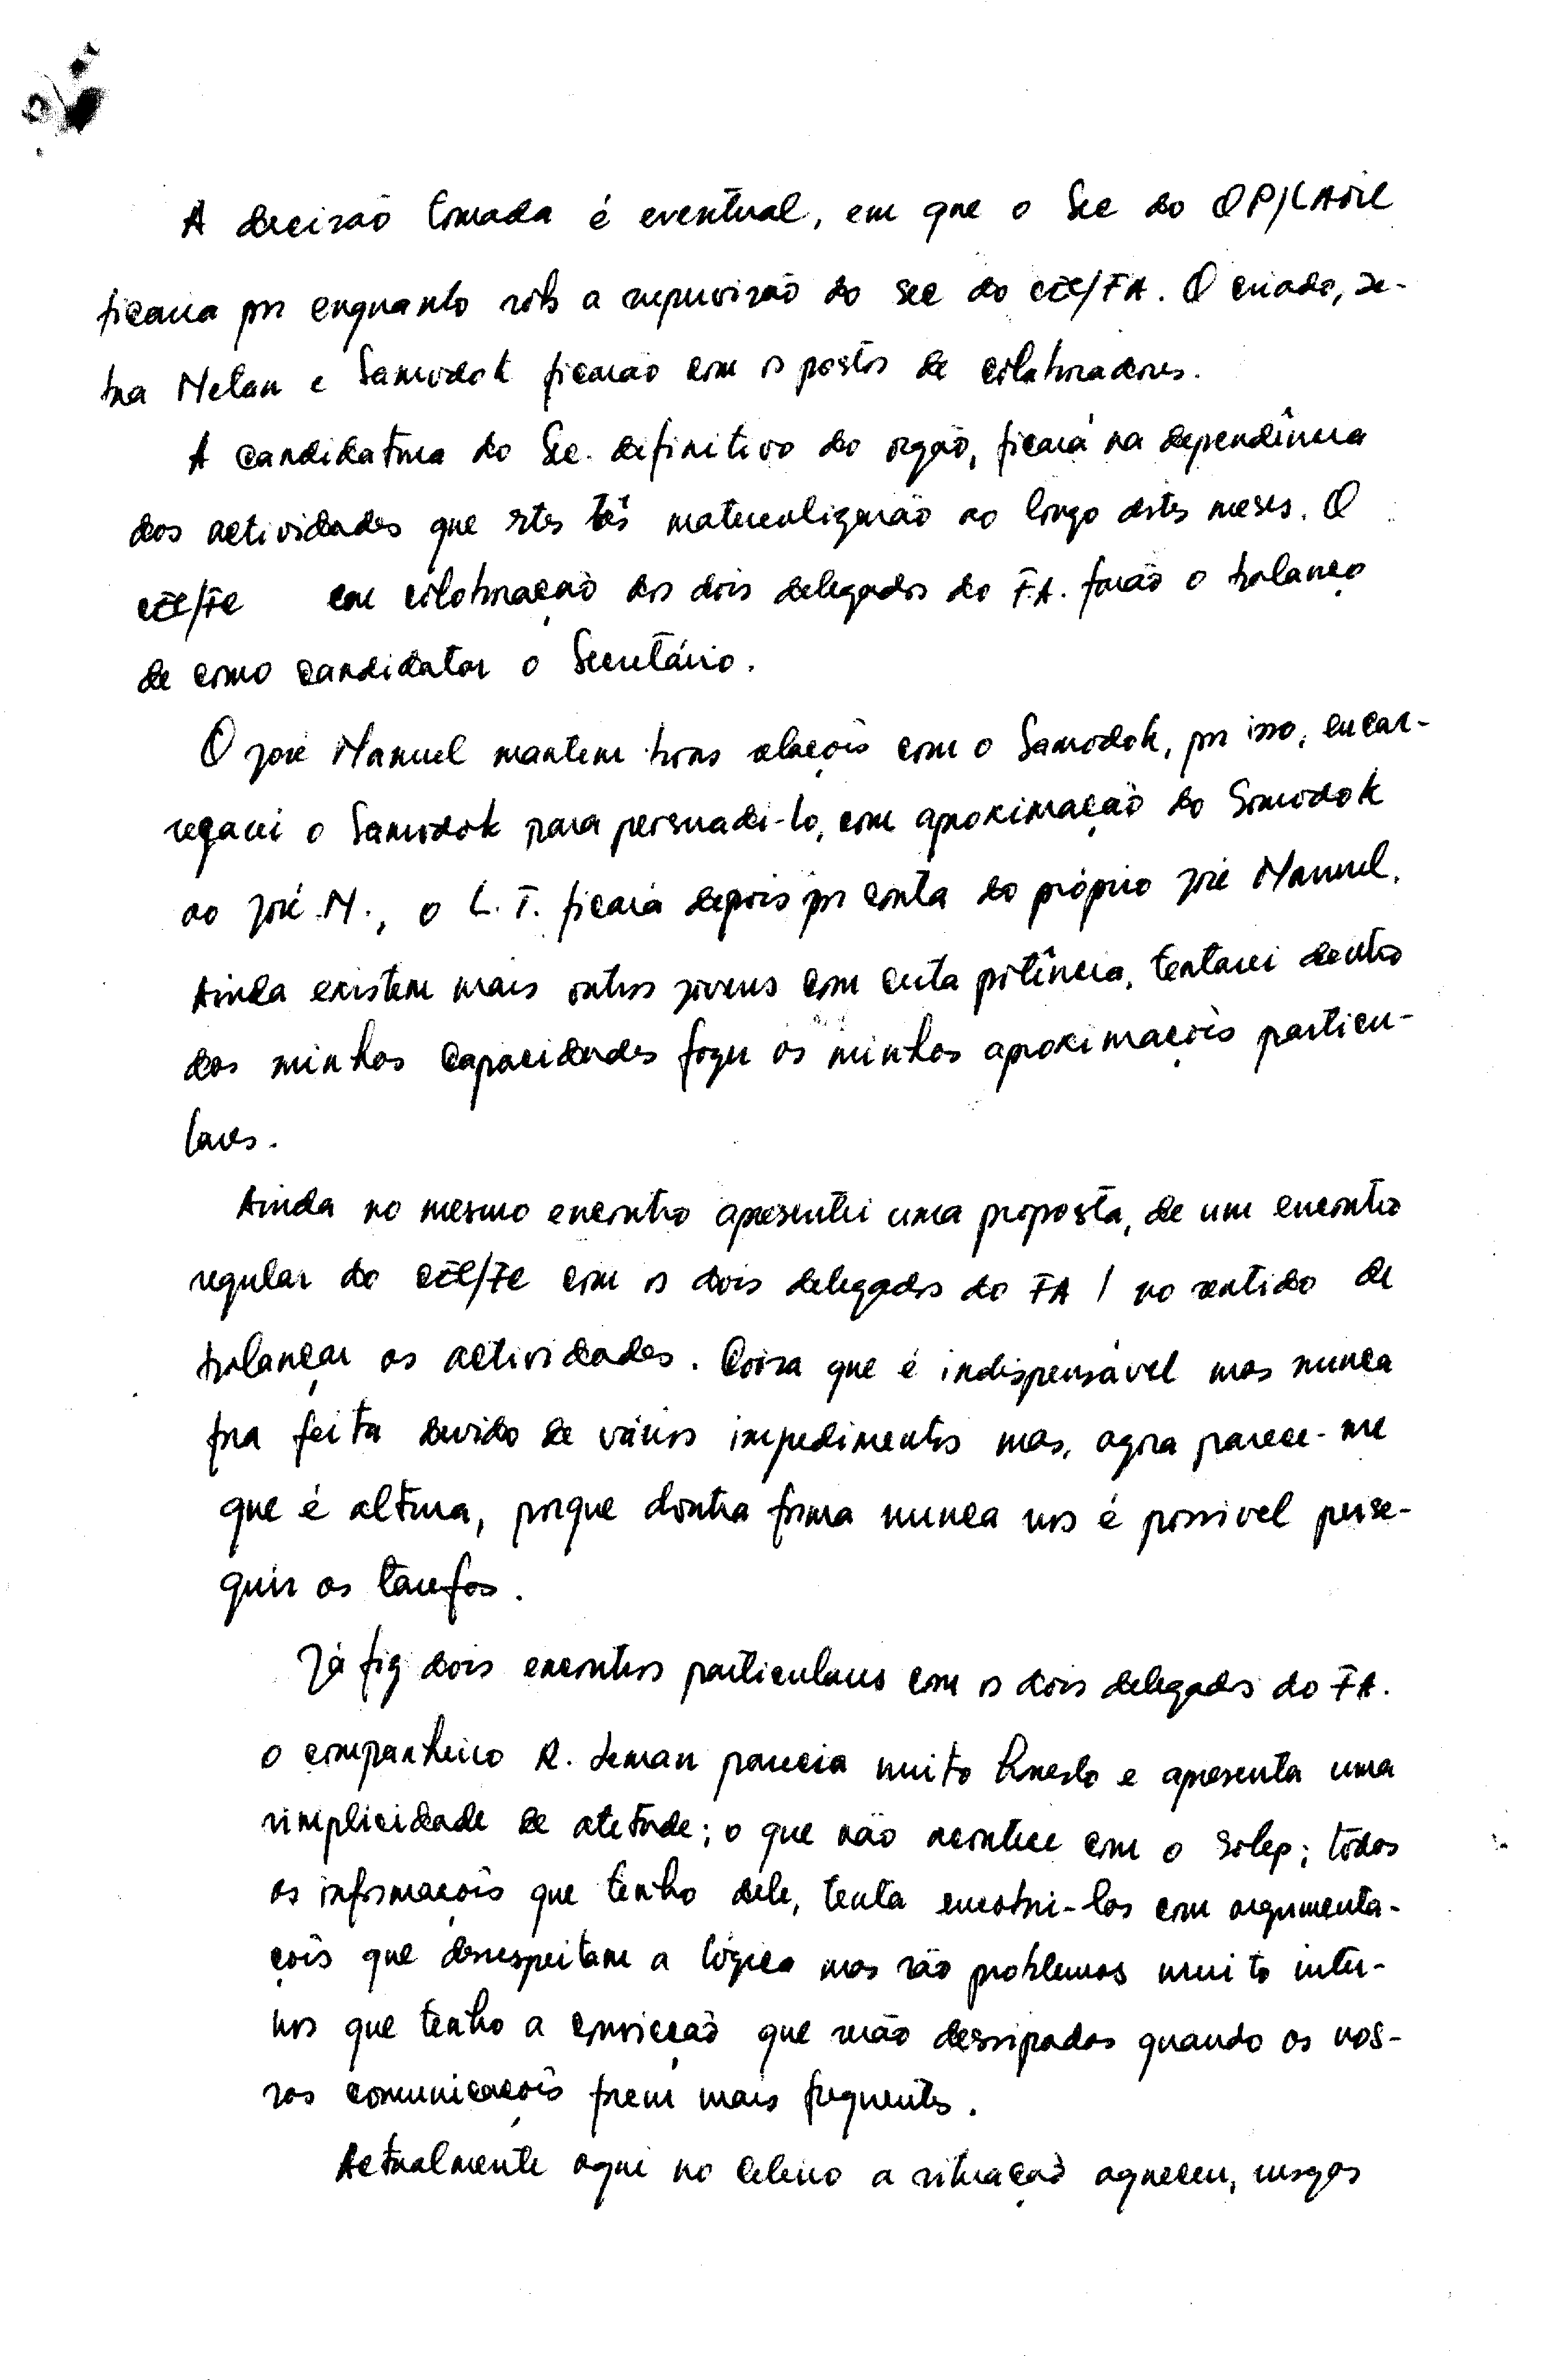 A decisão tomada é eventual, em que o Sec do OP/CAOIL
ficara por enquanto sob a supervisão do sec do CEL/FA. O criado, se-
bra Melan e Samodok ficarão com os postos de colaboradores.
A candidatura do Sec. definitivo do orgão, ficará na dependência
das actividades que estes três materializarão ao longo destes meses. O
CEL/FC em colaboração dos dois delegados do F.A. farão o balanço
de como candidatar o Secretário.
O José Manuel mantem bons relações com o Samodok, por isso, encar-
regarei o Samodok para persuadi-lo, com aproximação do Samodok
ao José M., o L.T. ficará depois por conta do próprio José Manuel.
Ainda existem mais outros jovens com certa potência, tentarei dentro
das minhas capacidades fazer as minhas aproximações particu-
lares.
Ainda no mesmo encontro apresentei uma proposta, de um encontro
regular do CEL/FC com os dois delegados do FA / no sentido de
balançar as actividades. Coisa que é indispensável mas nunca
fora feita devido de vários impedimentos mas, agora parece-me
que é altura, porque doutra forma nunca nos é possivel perse-
guir as tarefas.
Já fiz dois encontros particulares com os dois delegados do FA.
O companheiro R. Leman parecia muito honesto e apresenta uma
simplicidade de atetude; o que não acontece com o Solep; todas
as informações que tenho dele, tenta encobri-las com argumenta-
ções que desrespeitam a lógica mas são problemas muito inter-
nos que tenho a convicção que serão dessipados quando as nos-
sas comunicações forem mais frequentes.
Actualmente aqui no Celeiro a situação aqueceu, rusgas